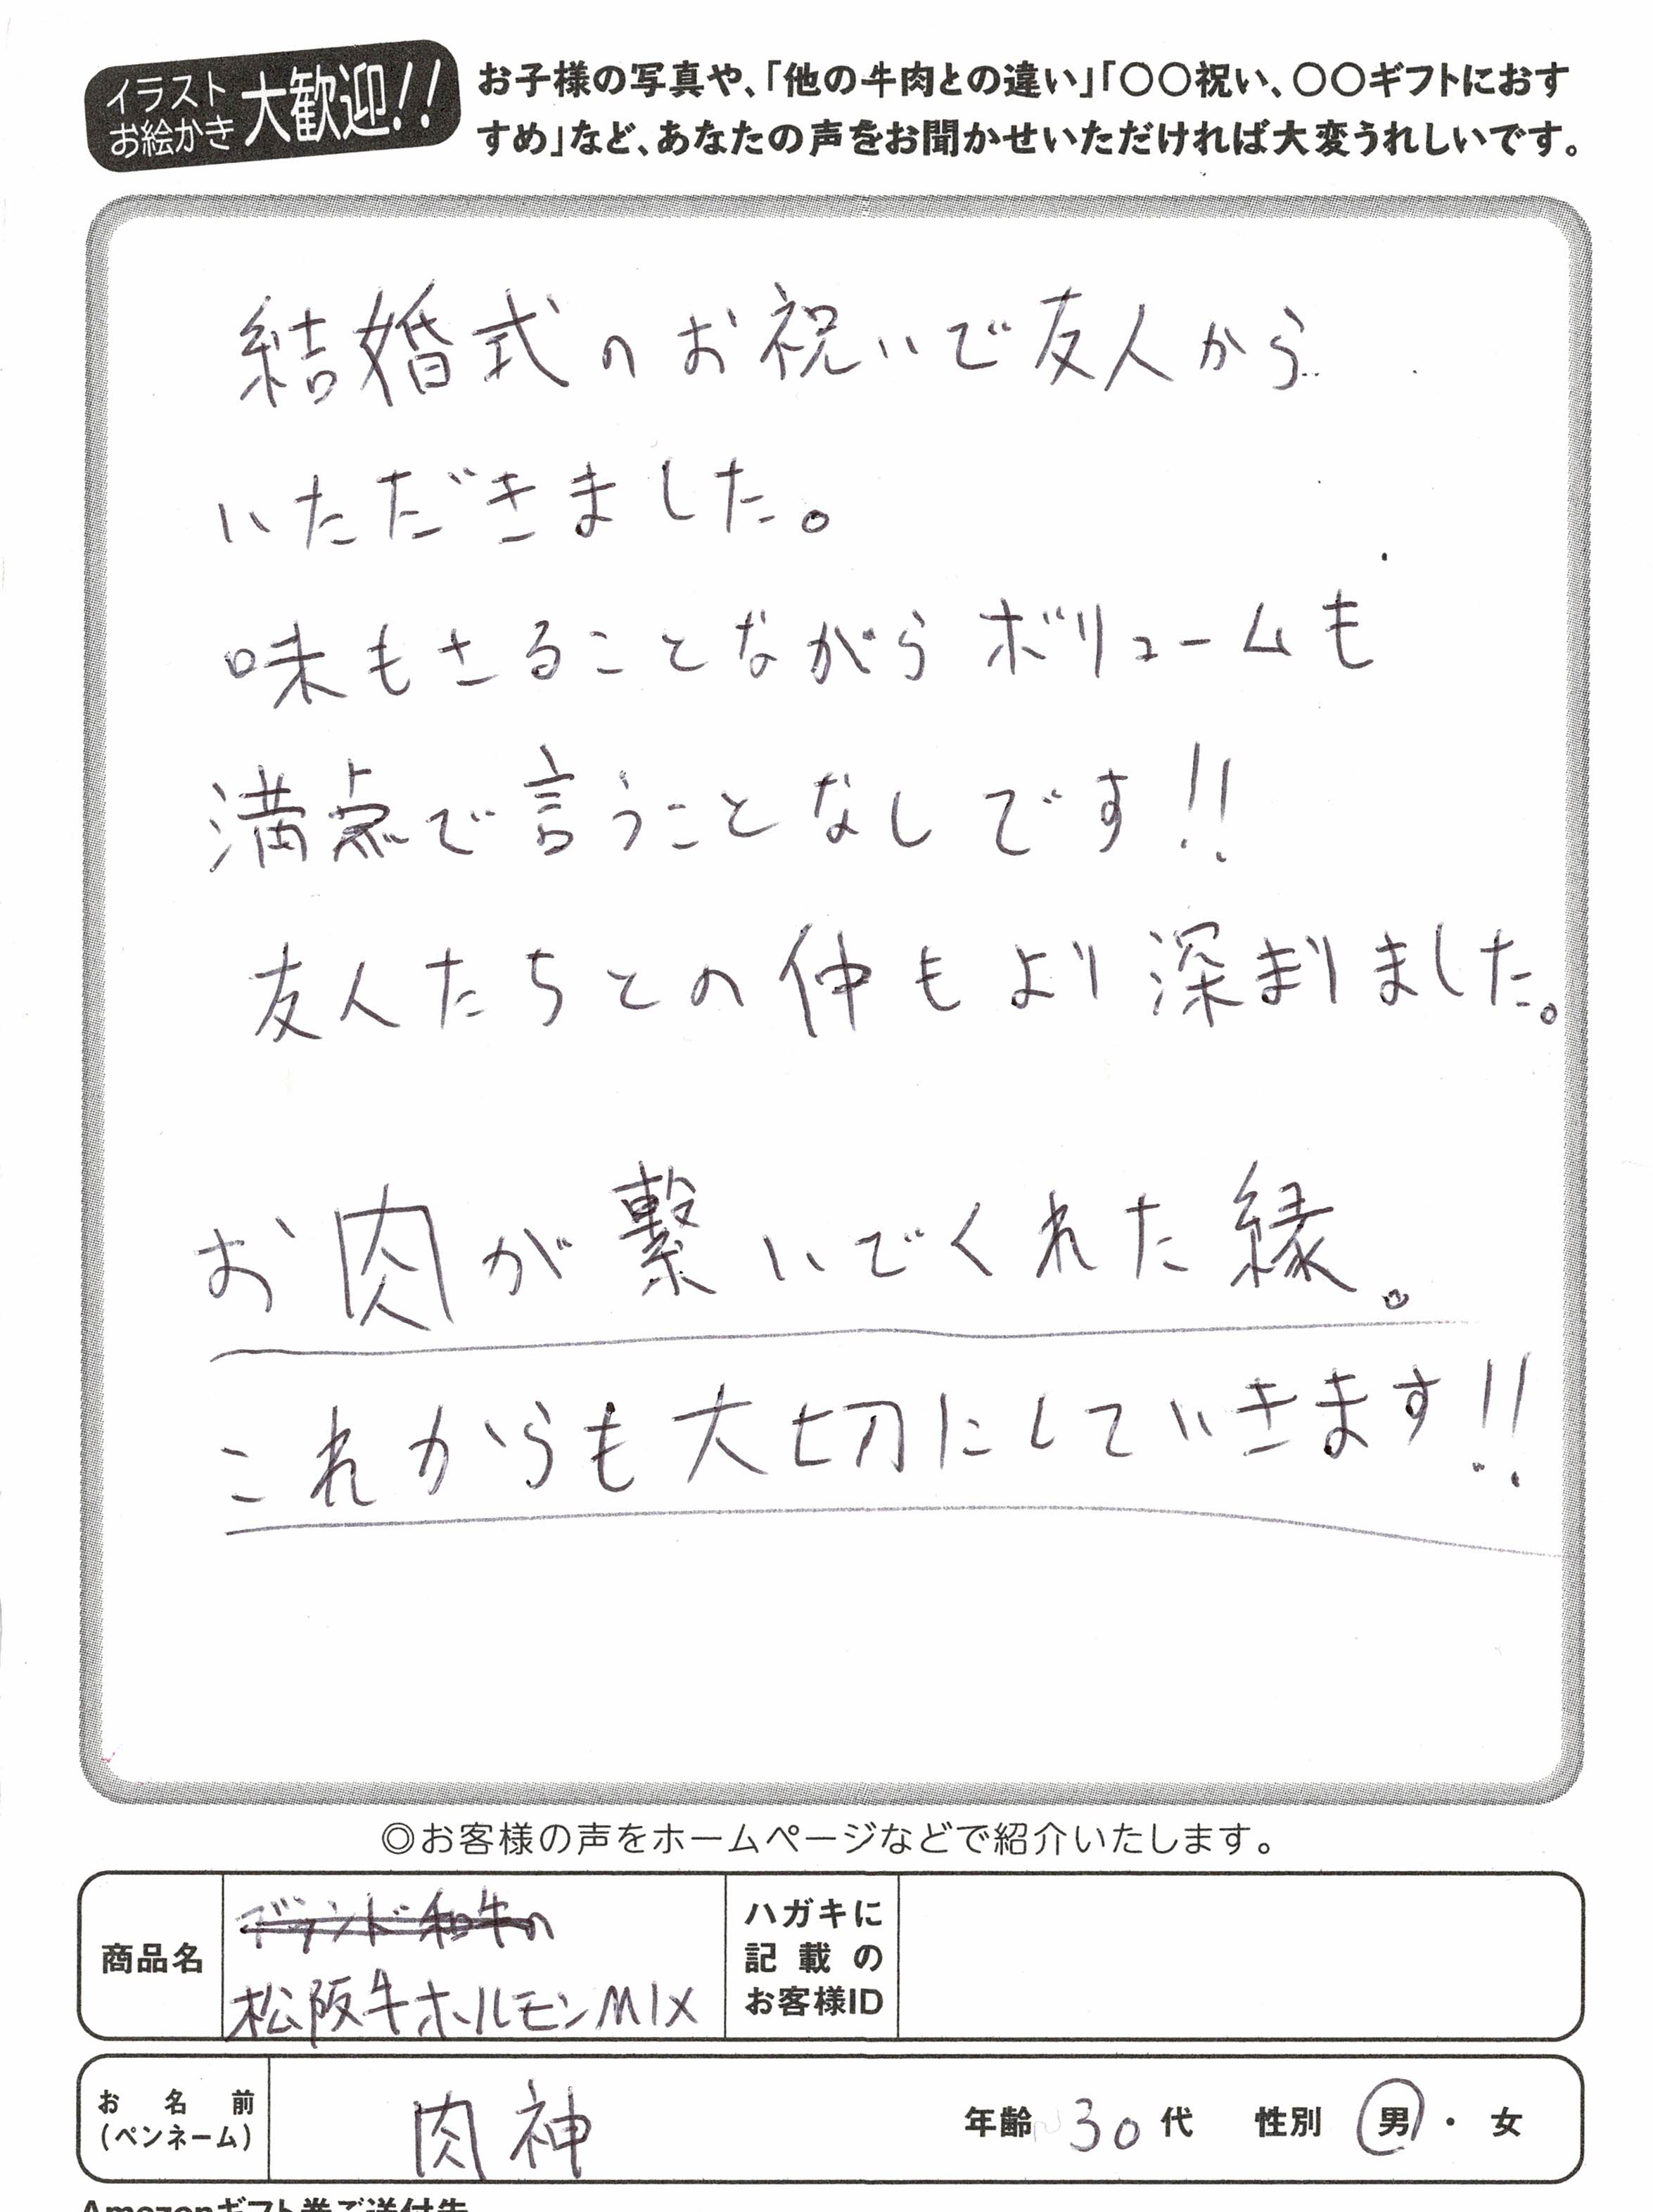 イラスト
お絵かき
大歓迎!!
お子様の写真や、「他の牛肉との違い」「〇〇祝い、〇〇ギフトにおす
すめ」など、あなたの声をお聞かせいただければ大変うれしいです。
結婚式のお祝いで友人から
いただきました。
味もさることながらボリュームも
満点で言うことなしです!!
友人たちとの仲もより深まりました。
お肉が繋いでくれた縁。
これからも大切にしていきます!!
◎お客様の声をホームページなどで紹介いたします。
商品名
ブランド和牛の
松阪牛ホルモンMIX
ハガキに
記載の
お客様ID
お名前
(ペンネーム)
肉神
年齢 30代 性別 男・女
Amazonギフト券ご送付先